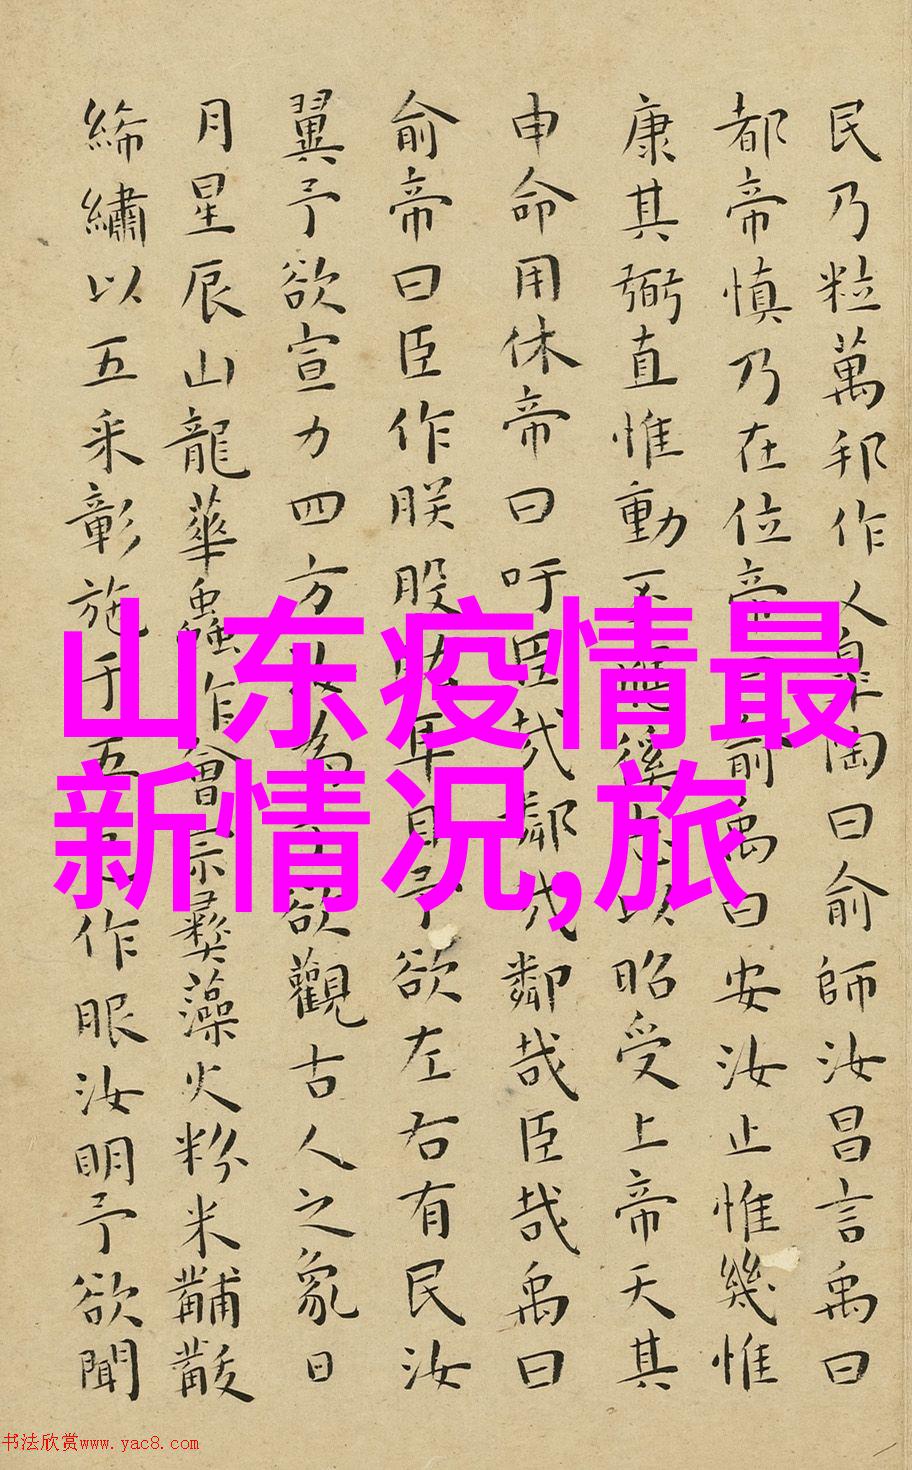 民乃粒萬邦作乂皋陶曰俞師汝昌言禹曰
都帝慎乃在位帝俞禹曰安汝止惟幾惟
康其弼直惟動丕應徯志以昭受上帝天其
申命用休帝曰吁臣哉鄰哉鄰哉臣哉禹曰
俞帝曰臣作朕股肱耳目予欲左右有民汝
翼予欲宣力四方汝為予欲觀古人之象日
月星辰山龍華蟲作會宗彝藻火粉米黼黻
絺繡以五采彰施于五作服汝明予欲聞
山东疫情最
新情况,旅
书法欣赏www.yac8.com